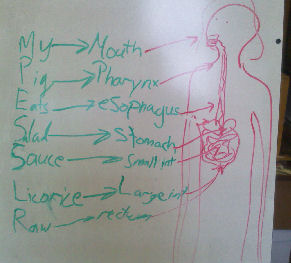 My → Mouth
Pig → Pharynx
Eats → eSophagus
Salad → Stomach
Sauce → Small int
Licorice → Large int
Raw → rectum